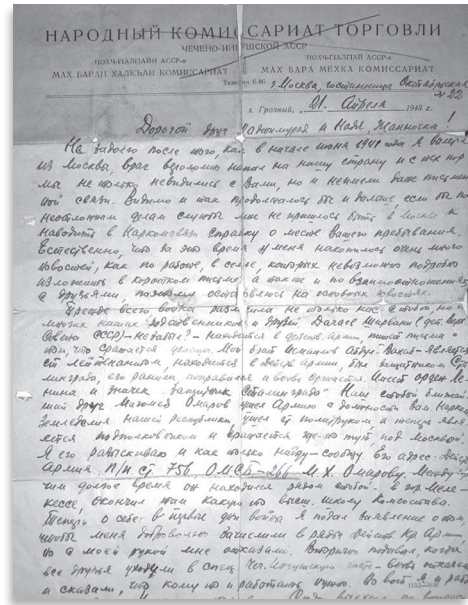 НАРОДНЫЙ КОМИССАРИАТ ТОРГОВЛИ
ЧЕЧЕНО-ИНГУШСКОЙ АССР
НОХЧ-ГIАЛГIАЙН АССР-н НОХЧ-ГIАЛГIАЙ АССР-н
МАХ БАРАН ХАЛКЪАН КОМИССАРИАТ МАХ БАРА МЕХКА КОМИССАРИАТ
Телефон Б-86 г. Москва, гостинница Октябрьская
№ 22
г. Грозный, 21. Апреля 1943 г.
Дорогой друг и Надя, Жанночка!
На задолго после того, как в начале июня 1941 года я выехал
из Москвы, враг вероломно напал на нашу страну и с тех пор
мы не только невидились с Вами, но и неимеем даже письмен
ной связи. Видимо и так продолжалось бы и дальше, если бы по
неотложным делам службы мне не пришлось быть в Москве и
наводить в Наркомсвязи справку о месте Вашего пребывания.
Естественно, что за это время у меня накопилось очень много
новостей, как по работе, в семье, которых невозможно подробно
изложить в коротком письме, а также и по взаимоотношениям
с друзьями, поэтому остановлюсь на основных новостях.
Прежде всего война разлучила не только нас с тобой, но
многих наших родственников и друзей
Совета СССР) - находится в действ. армии, пишет письма о
том, что сражается Мой брат Абдул-Вахаб - является
ст. лейтенантом, находится в действ. армии, был защитником Ста
линграда, его ранили, поправился и вновь сражается. Имеет орден Ле
нина и значек "защитник Сталинграда" Наш с тобой близкий
друг Омаров ушел в Армию с должности зам. Нарком
Земледелия нашей Республики, ушел ст. политруком, а теперь явля
ется подполковником и вращается где-то тут под Москвой.
Я его разыскиваю и как только найду - сообщу. Его адрес: Действ.
Армия. П/п ст. 756 ОМСБ-266 М.Х. Омарову. Между про
чим долгое время он находился рядом с тобой - в гор. Меле
кессе, окончил там какую то высш. школу комсостава.
Теперь о себе: в первые дни войны я подал заявление о том,
чтобы меня добровольно зачислили в ряды действ. Кр. Армии,
но с моей рукой мне отказали. Вторично подавал, когда
все друзья уходили в часть - вновь отказали
и сказали, что кому то и работать нужно. Но вот я и работ